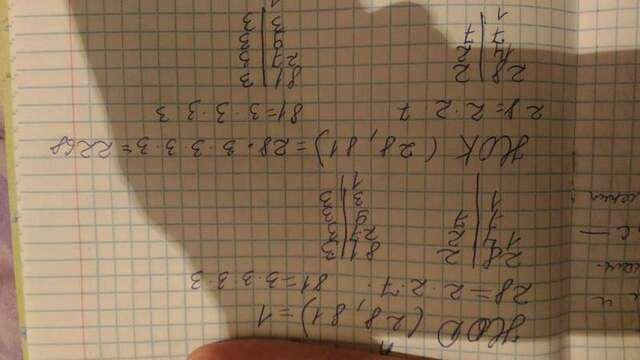 НОД (28, 81) = 1
28 = 2 · 2 · 7. 81 = 3 · 3 · 3 · 3
28 | 2 81 | 3
14 | 2 27 | 3
7 | 7 9 | 3
1 | 3 | 3
1 |
НОК (28, 81) = 28 · 3 · 3 · 3 · 3 = 2268
28 = 2 · 2 · 7 81 = 3 · 3 · 3 · 3
28 | 2 81 | 3
14 | 2 27 | 3
7 | 7 9 | 3
1 | 3 | 3
1 |